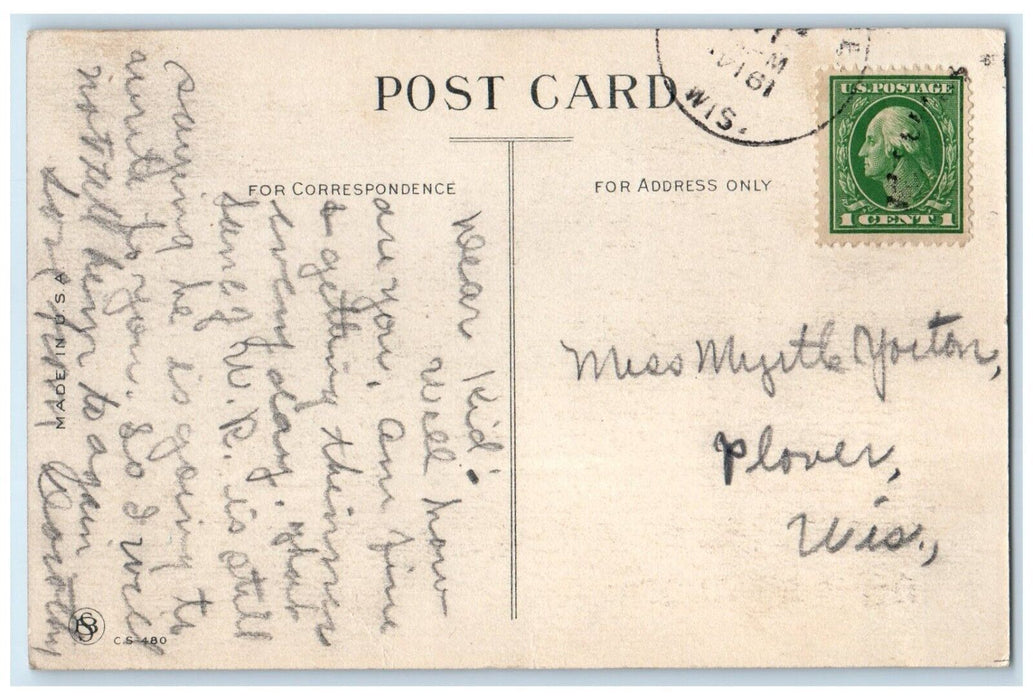 POST CARD
WIS.
U.S. POSTAGE
1 CENT 1
FOR CORRESPONDENCE
FOR ADDRESS ONLY
Dear Kid:
Well how
are you. Am fine
& getting thinner
every day. that
fame of W. R. is still
saying he is going to
write to you. So I will
not tell heyr to again
Dorothy
Miss Myrtle Yorton,
Plover,
Wis.,
MADE IN U.S.A
C.S-480